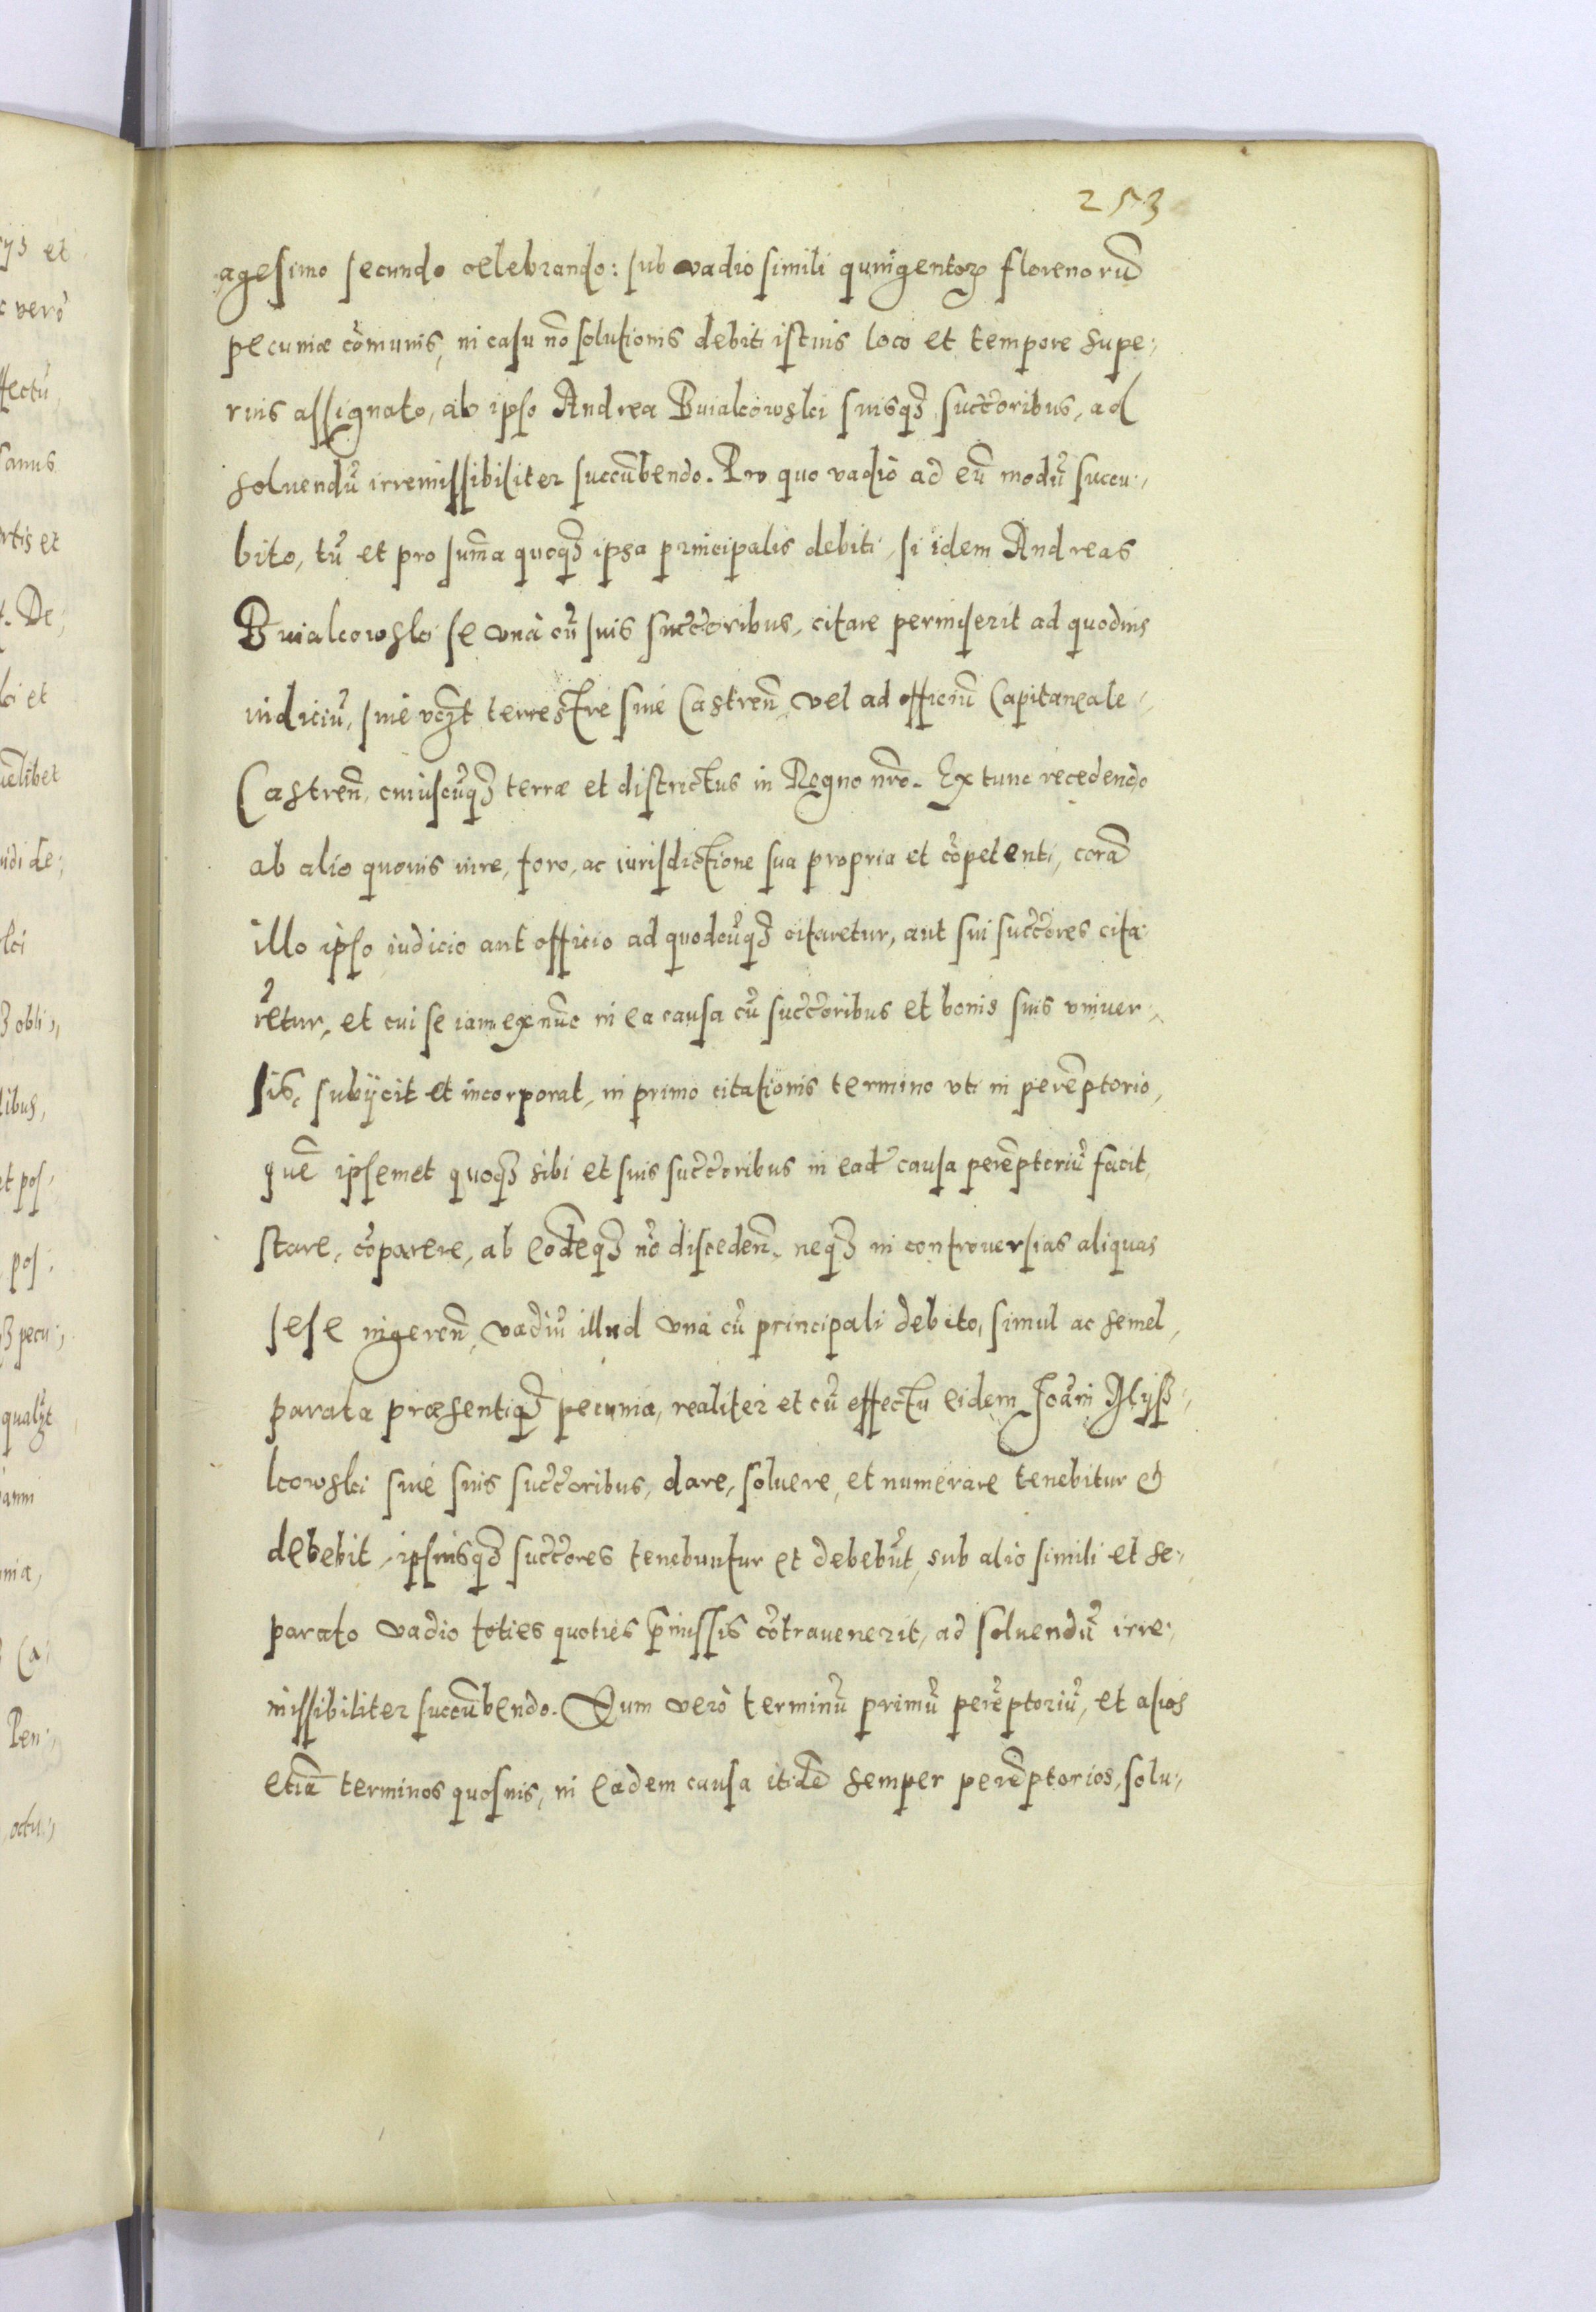 253
agesimo secundo celebrando: sub vadio simili quingentoꝝ florenorũ
pecuniæ cõmunis, in casu nõ solutionis debiti istius loco et tempore supe:
rius assignato, ab ipso Andrea Buialkowski suisq̃ succ̃oribus, ad
soluendũ irremissibiliter succũbendo. Pro quo vadio ad eũ modũ succu:
bito, tũ et pro sum̃a quoq̃ ipsa principalis debiti, si idem Andreas
Buialkowski se vnà cũ suis succ̃oribus, citare permiserit ad quoduis
iudiciũ, siue vcz̃t terrestre siue Castreñ, vel ad officiũ Capitaneale
Castreñ, cuiuscũq̃ terræ et districtus in Regno nr̃o. Ex tunc recedendo
ab alio quouis iure, foro, ac iurisdictione sua propria et cõpetenti, corã
illo ipso iudicio aut officio ad quodcũq̃ citaretur, aut sui succ̃ores cita:
rẽtur, et cui se iam ex nũc in ea causa cũ succ̃oribus et bonis suis vniuer:
sis, subijcit et incorporat, in primo citationis termino vti in perẽptorio,
quẽ ipsemet quoq̃ sibi et suis succ̃oribus in eadẽ causa perẽptoriũ facit,
stare, cõparere, ab eodẽq̃ nõ discedeñ, neq̃ in controuersias aliquas
sese ingereñ, vadiũ illud vnà cũ principali debito, simul ac semel,
parata præsentiq̃ pecunia, realiter et cũ effectu eidem Joãni Glysz:
kowski siue suis succ̃oribus, dare, soluere, et numerare tenebitur &
debebit, ipsiusq̃ succ̃ores tenebuntur et debebũt, sub alio simili et se:
parato vadio toties quoties p̃missis cõtrauenerit, ad soluendũ irre:
missibiliter succũbendo. Quum verò terminũ primũ perẽptoriũ, et alios
etiã terminos quosuis, in eadem causa itidẽ semper perẽptorios, solu: